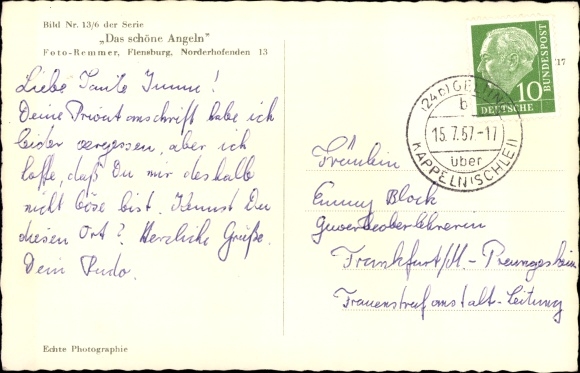 Bild Nr. 13/6 der Serie
„Das schöne Angeln"
Foto-Remmer, Flensburg, Norderhofenden 13
Liebe Tante Emmi!
Deine Privatanschrift habe ich
leider vergessen, aber ich
hoffe, daß Du mir deshalb
nicht böse bist. Kennst Du
diesen Ort? Herzliche Grüße.
Dein Pudo.
Echte Photographie
10
DEUTSCHE
BUNDESPOST
(24b)
b
15.7.57-17
über
KAPPELN (SCHLEI)
Fräulein
Emmy Block
Gewerbeoberlehrerin
Frankfurt/M.-Preungesheim
Frauenstrafanstalt-Leitung